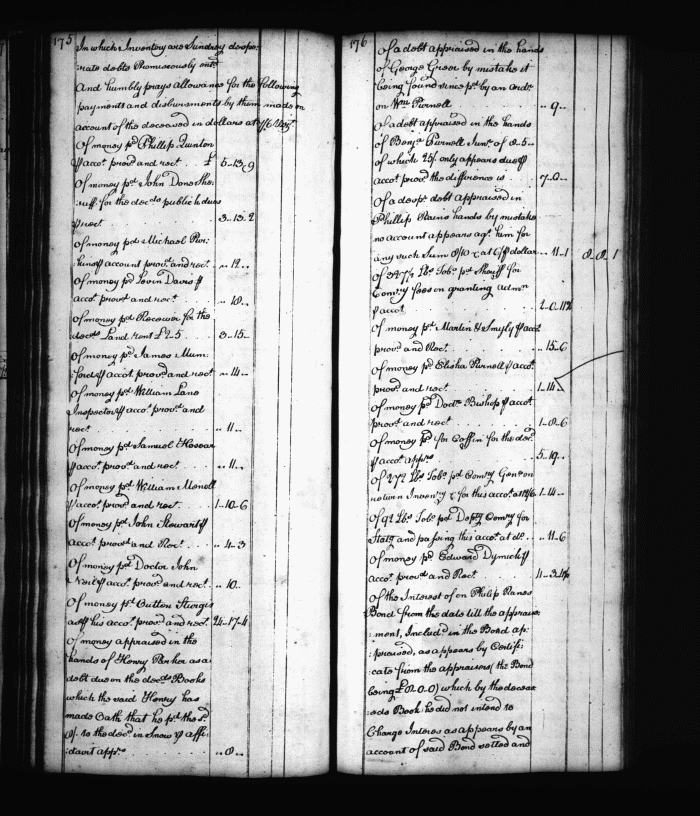 175
In which Inventory are Sundrey despe:
:rate debts Promiscuously
And humbly prays allowance for the following
payments and disbursments by them made on
account of the deceased in dollars at
Of money pd Phillip Quinton
⅌ accot. provd and rect. . . £ 5-13-9
Of money pd John Done She:
:riff for the decds publick dues
⅌ rect . . . 3-13-2
Of money pd Michael
account provd and rect. . . ,,12,,
Of money pd Levin Davis ⅌
accot. provd and rect . . . ,,10,,
Of money pd Receiver for the
decds Land rent £2-5 . . 3-15-
Of money pd James Mum
:ford ⅌ accot. provd and rect . ,,14,,
Of money pd William Lane
Inspector ⅌ accot. provd and
rect . . . ,,11,,
Of money pd Samuel
⅌ accot. provd and rect . . ,,11,,
Of money pd William
⅌ accot. provd and rect . . 1-10-6
Of money pd John Stewart ⅌
accot provd and Rect . . ,,4-3
Of money pd Doctor John
Neil ⅌ accot. provd and rect . . ,,10,,
Of money pd Outten Sturgis
his accot. provd and rect. 24-17-4
Of money appraised in the
hands of Henry Parker as a
debt due on the decds Books
which the said Henry has
made Oath that he pd the sd
to the decd in Snow Affi:
:davit apprs . . . ,,8,,
176
Of a debt appraised in the hands
of George Greer by mistake it
being found since pd by an Orde
on Wm Purnell . . . ,,9,,
Of a debt appraised in the hands
of Benja Purnell Junr of 8-5-
of which 25/ only appears due ⅌
accot. provd the difference is . . 7-0-
Of a despe debt appraised in
Phillip Rains hands by mistake
no account appears agt him for
any such Sum dollar ,,11-1 8-8-1
Of lbs Tobo pd Sheriff for
Comry fees on granting admn
⅌ accot . . . 2-0-11½
Of money pd Martin & Smyly ⅌ accot
provd and Rect . . . ,,15-6
Of money pd Elisha Purnell ⅌ accot.
provd and rect . . . 1-14
Of money pd Doctr Bishop ⅌ accot
provd and rect . . . 1-8-6
Of money pd for Coffin for the decd
⅌ accot apprs . . . 5-19-
Of 272 lbs Tobo pd Comry Genl on
return Inventy & for this accot. at 1-14-
Of 92 lbs Tobo pd Depty Comry for
Statg and passing this accot at do . . ,,11-6
Of money pd Edward Dymick ⅌
accot. provd and Rect . . .
Of the Interest of on Philip Ranes
Bond from the date till the appraise:
:ment, Includd in the Bond ap:
:praised, as appears by Certifi:
:cate from the appraisers (the Bond
being £8.0.0) which by the deceas
:eds Book he did not intend to
Charge Interes as appears by an
account of said Bond settled and